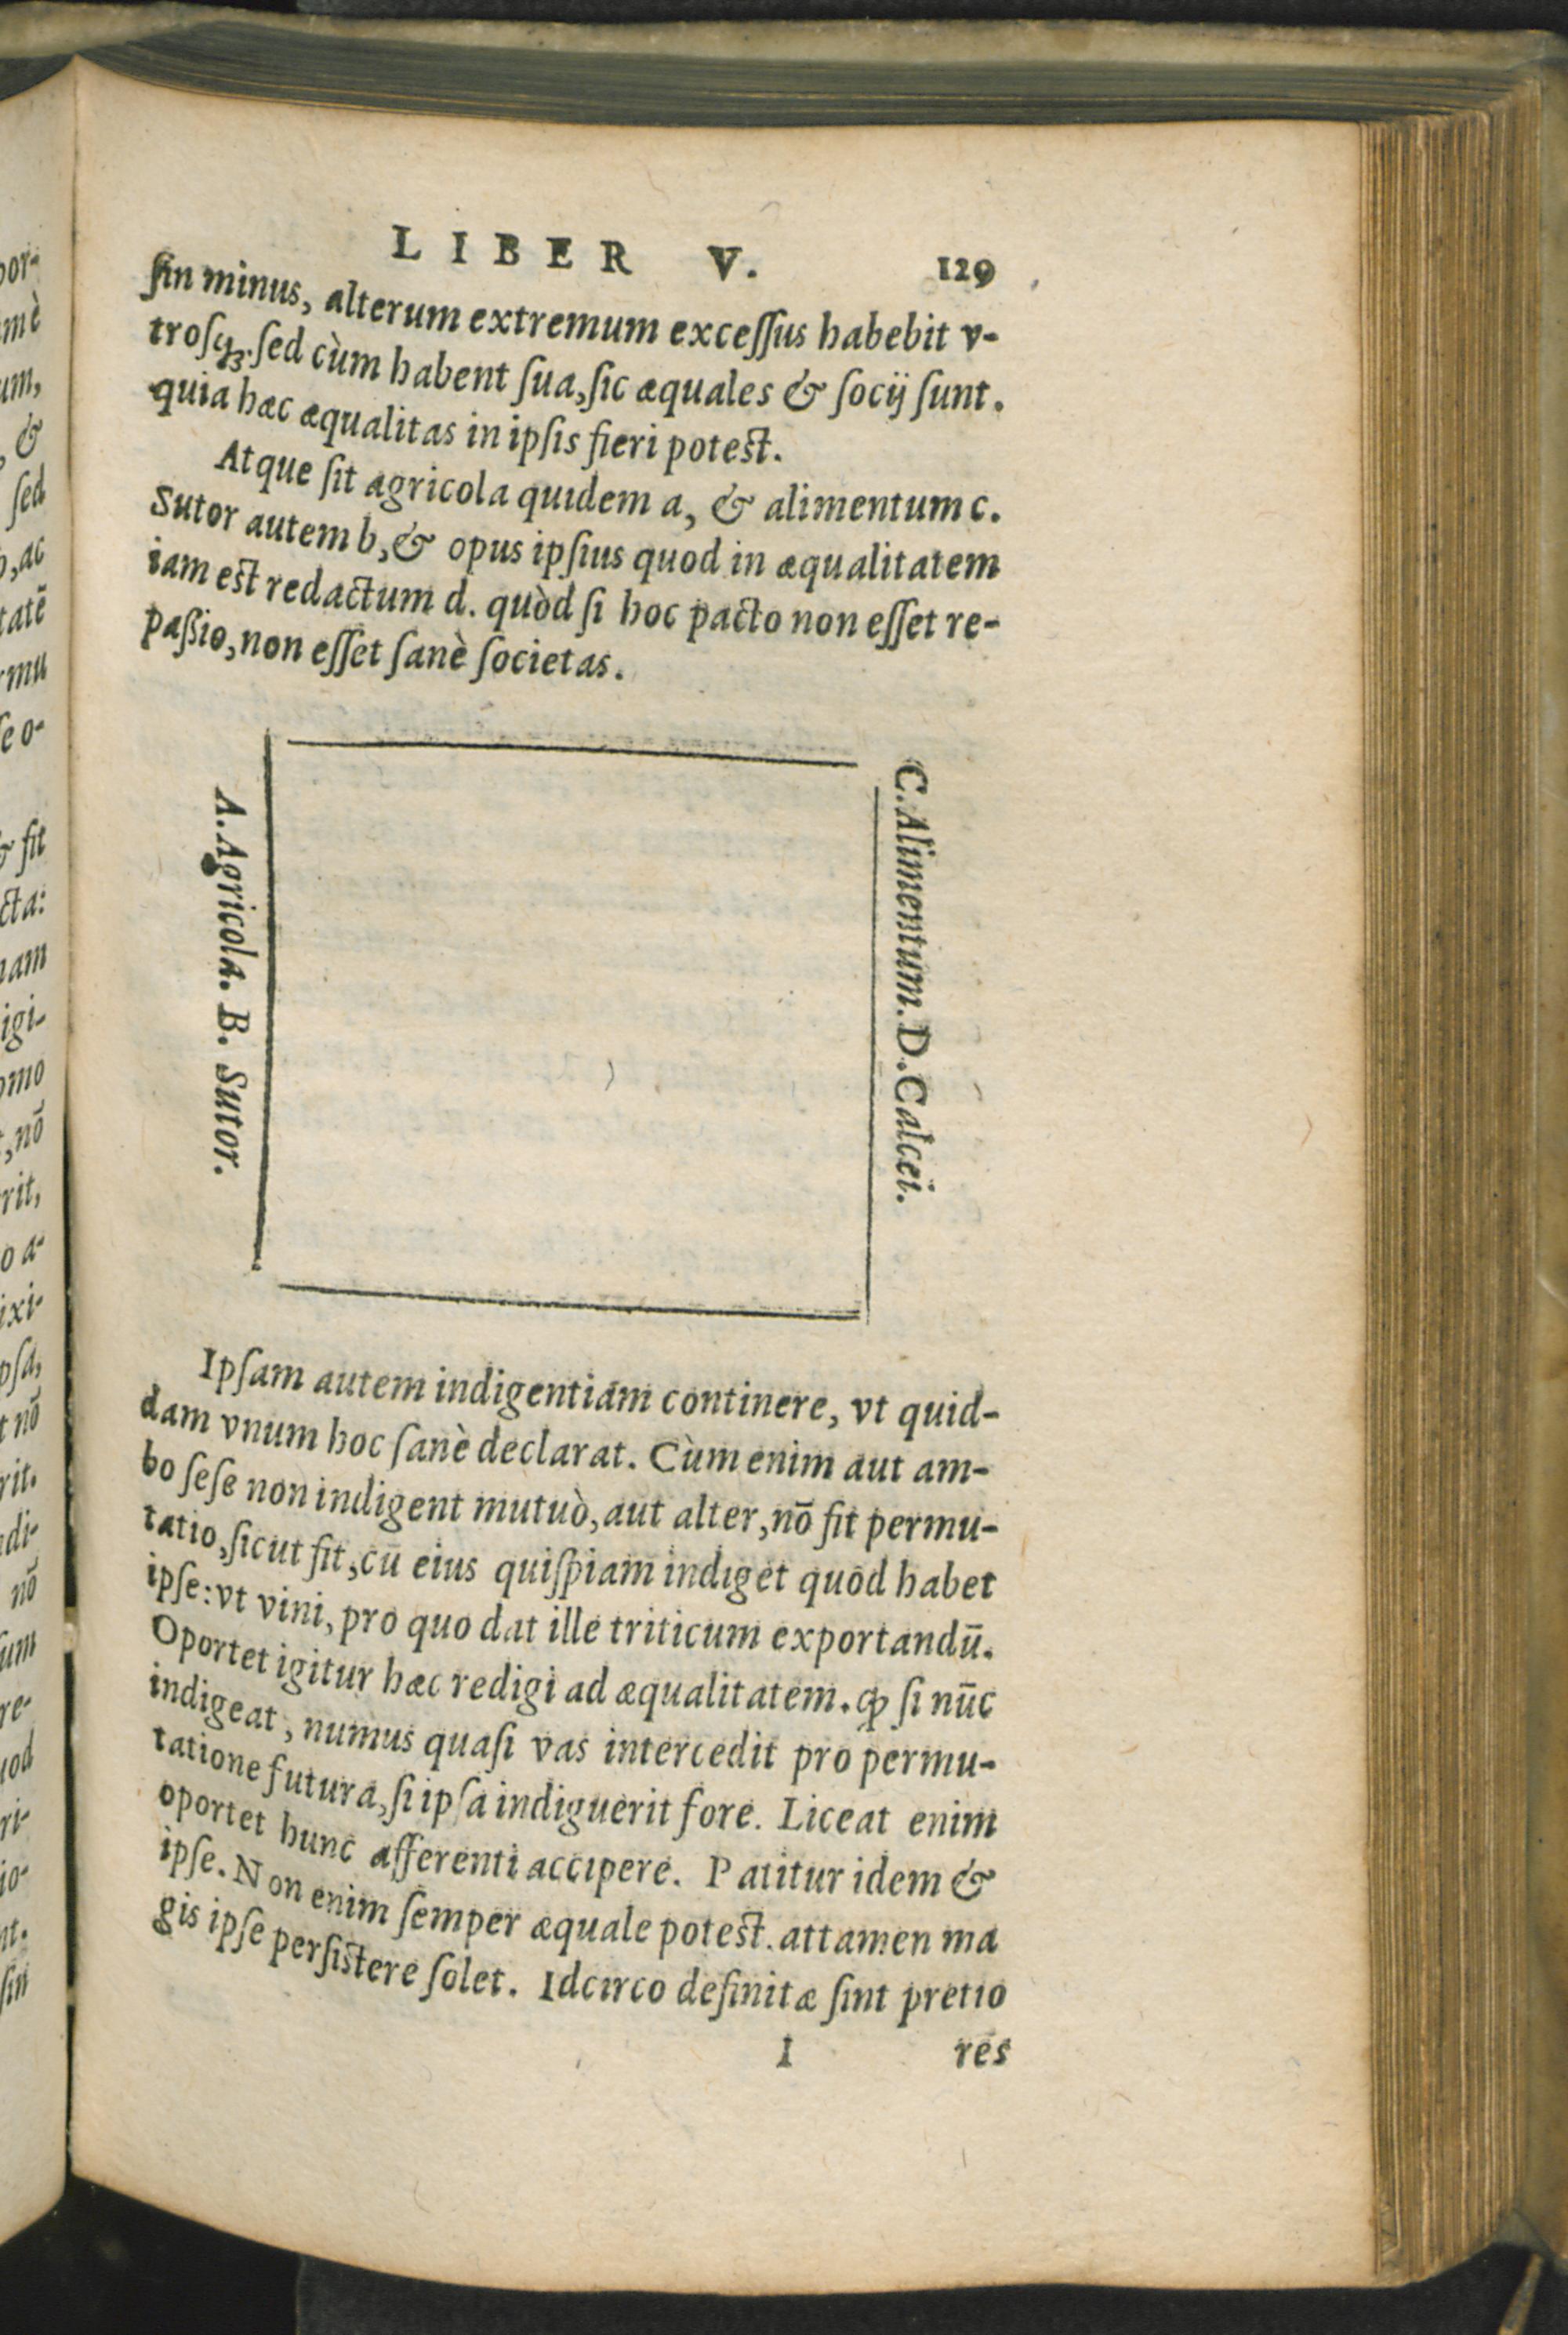 LIBER V. 129
ſin minus, alterum extremum exceſſus habebit v-
troſq;. ſed cùm habent ſua, ſic æquales & ſocij ſunt.
quia hæc æqualitas in ipſis fieri poteſt.
Atque ſit agricola quidem a, & alimentum c.
Sutor autem b, & opus ipſius quod in æqualitatem
iam eſt redactum d. quòd ſi hoc pacto non eſſet re-
paßio, non eſſet ſanè ſocietas.
A. Agricola. B. Sutor.
C. Alimentum. D. Calcei.
Ipſam autem indigentiam continere, vt quid-
dam vnum hoc ſanè declarat. Cùm enim aut am-
bo ſeſe non indigent mutuò, aut alter, nō fit permu-
tatio, ſicut fit, cū eius quiſpiam indiget quod habet
ipſe: vt vini, pro quo dat ille triticum exportandū.
Oportet igitur hæc redigi ad æqualitatem. ꝙ ſi nūc
indigeat, numus quaſi vas intercedit pro permu-
tatione futura, ſi ipſa indiguerit fore. Liceat enim
oportet hunc afferenti accipere. Patitur idem &
ipſe. Non enim ſemper æquale poteſt. attamen ma
gis ipſe perſiſtere ſolet. Idcirco definitæ ſint pretio
I res